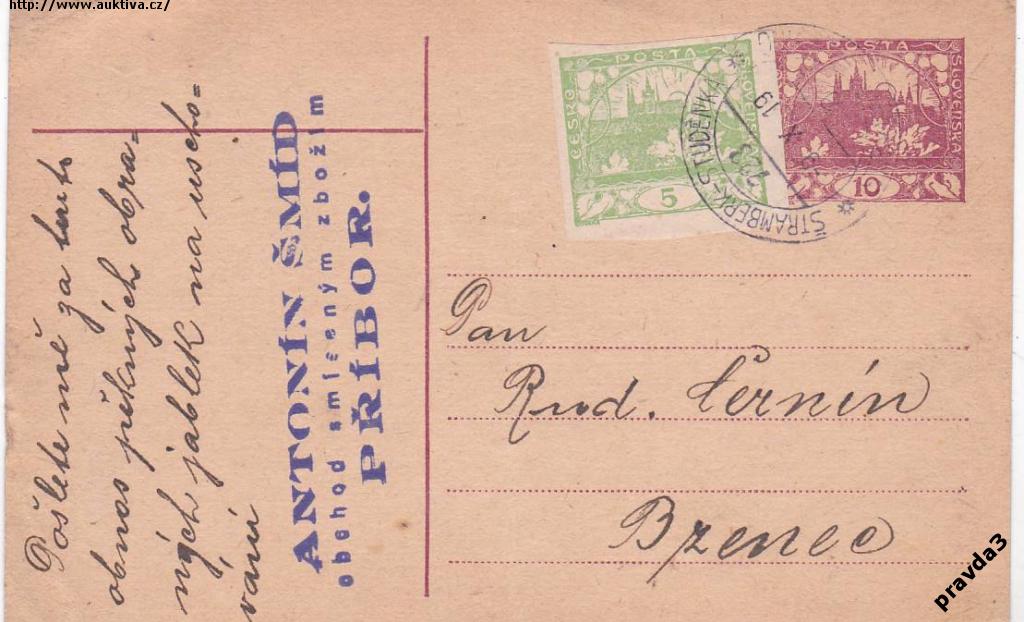 http://www.auktiva.cz/
Pošlete mě za tuto
obnos pěkných obra-
ných jablek na uscho-
vání
ANTONÍN ŠMÍD
obchod smíšeným zbožím
PŘÍBOR.
POŠTA
ČESKO
SLOVENSKÁ
5
POŠTA
SLOVENSKÁ
10
ŠTRAMBERK-STUDÉNKA
X 19
223
Pan
Rud. Černín
Bzenec
pravda3